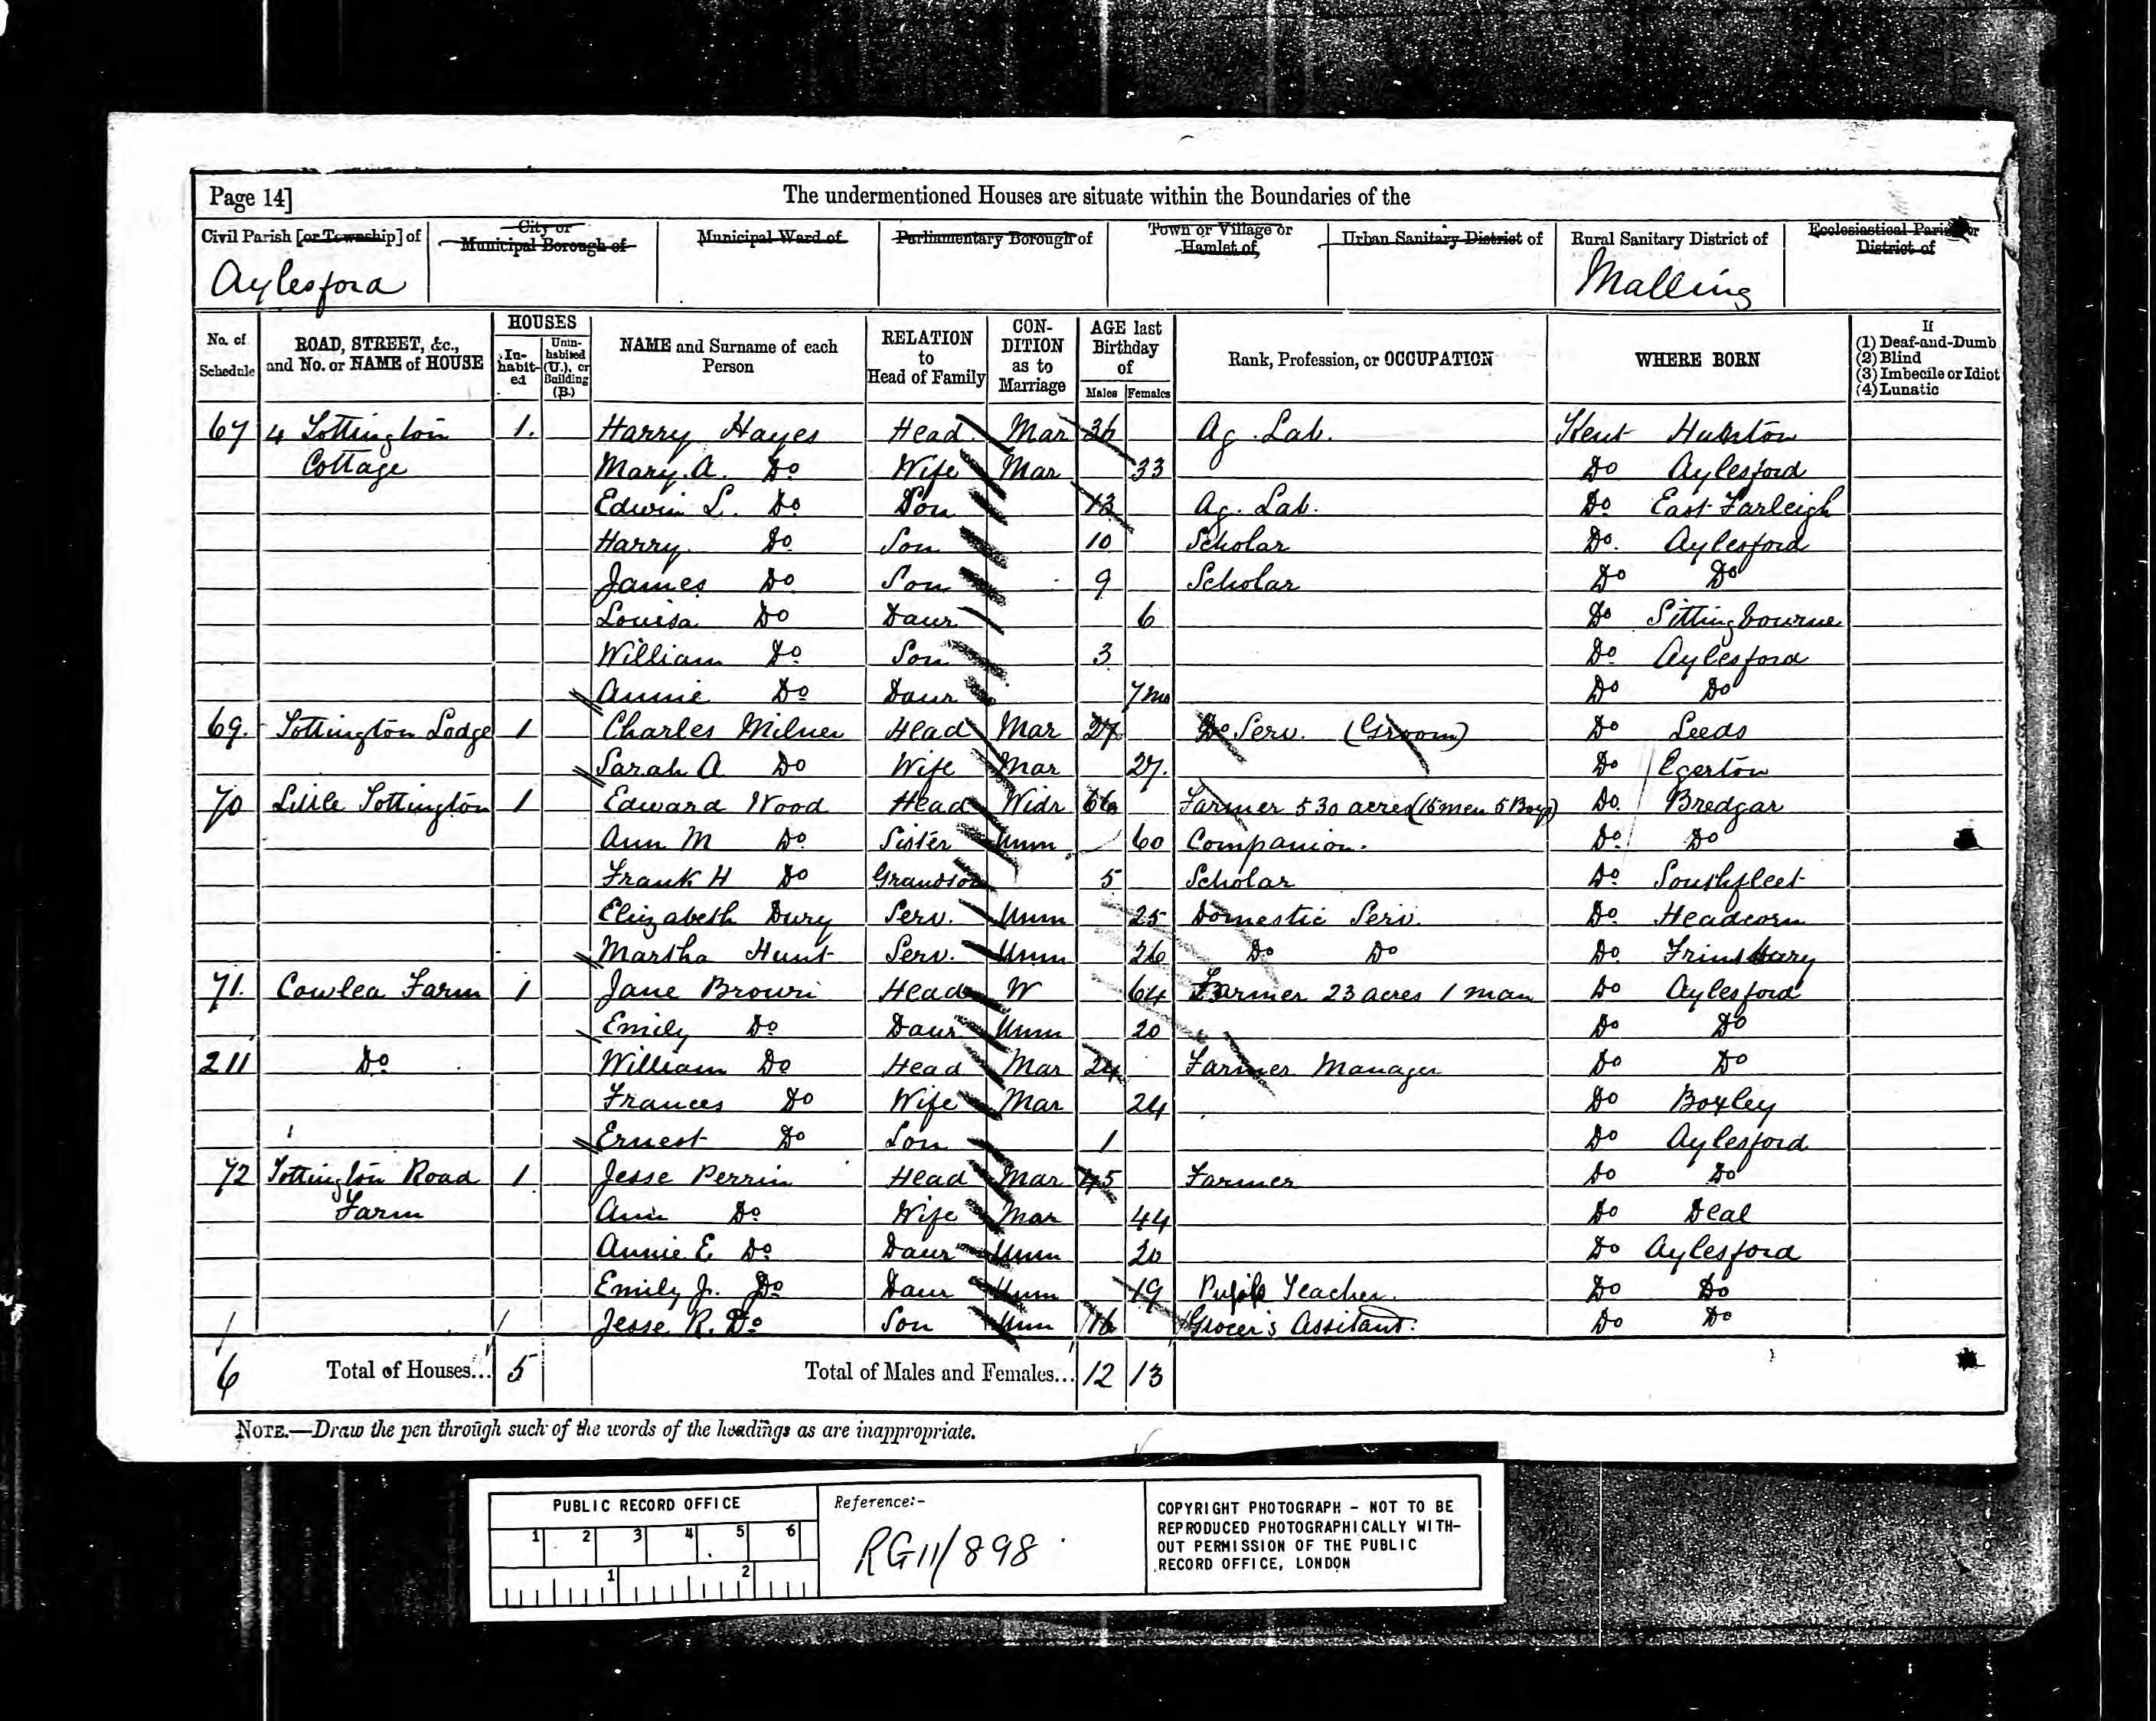 Page 14]
The undermentioned Houses are situate within the Boundaries of the
Civil Parish [or Township] of
City or Municipal Borough of
Municipal Ward of
Parliamentary Borough of
Town or Village or Hamlet of
Urban Sanitary District of
Rural Sanitary District of
Ecclesiastical Parish or District of
Aylesford
Malling
No. of Schedule
ROAD, STREET, &c., and No. or NAME of HOUSE
HOUSES
In-habit-ed
Unin-habited (U.), or Building (B.)
NAME and Surname of each Person
RELATION to Head of Family
CON-DITION as to Marriage
AGE last Birthday of
Males
Females
Rank, Profession, or OCCUPATION
WHERE BORN
If
(1) Deaf-and-Dumb
(2) Blind
(3) Imbecile or Idiot
(4) Lunatic
67 4 Tottington 1. Harry Hayes Head Mar 36 Ag. Lab. Kent Hunton
Cottage Mary. A. Do Wife Mar 33 Do Aylesford
Edwin L. Do Son 13 Ag. Lab. Do East Farleigh
Harry Do Son 10 Scholar Do. Aylesford
James Do Son 9 Scholar Do Do
Louisa Do Daur 6 Do Sittingbourne
William Do Son 3 Do Aylesford
Annie Do Daur 7mo Do Do
69. Tottington Lodge 1 Charles Milner Head Mar 27 Do Serv. (Groom) Do Leeds
Sarah A Do Wife Mar 27. Do Egerton
70 Little Tottington 1 Edward Wood Head Widr 66 Farmer 530 acres (15 men 5 Boys) Do. Bredgar
Ann M Do Sister Unm 60 Companion. Do Do
Frank H Do Grandson 5 Scholar Do Southfleet
Elizabeth Dury Serv. Unm 25 Domestic Serv. Do Headcorn
Martha Hunt Serv. Unm 26 Do Do Do Frindsbury
71. Cowlea Farm 1 Jane Brown Head W 64 Farmer 23 acres 1 man Do Aylesford
Emily Do Daur Unm 20 Do Do
211 Do William Do Head Mar 24 Farmer Manager Do Do
Frances Do Wife Mar 24 Do Boxley
Ernest Do Son 1 Do Aylesford
72 Tottington Road 1 Jesse Perrin Head Mar 45 Farmer Do Do
Farm Ann Do Wife Mar 44 Do Deal
Annie E. Do Daur Unm 20 Do Aylesford
Emily J. Do Daur Unm 19 Pupil Teacher. Do Do
Jesse R. Do Son Unm 16 Grocer's Assitant. Do Do
6 Total of Houses... 5 Total of Males and Females... 12 13
NOTE.—Draw the pen through such of the words of the headings as are inappropriate.
PUBLIC RECORD OFFICE
1 2 3 4 5 6
1 2
Reference:-
RG11/898
COPYRIGHT PHOTOGRAPH - NOT TO BE
REPRODUCED PHOTOGRAPHICALLY WITH-
OUT PERMISSION OF THE PUBLIC
RECORD OFFICE, LONDON